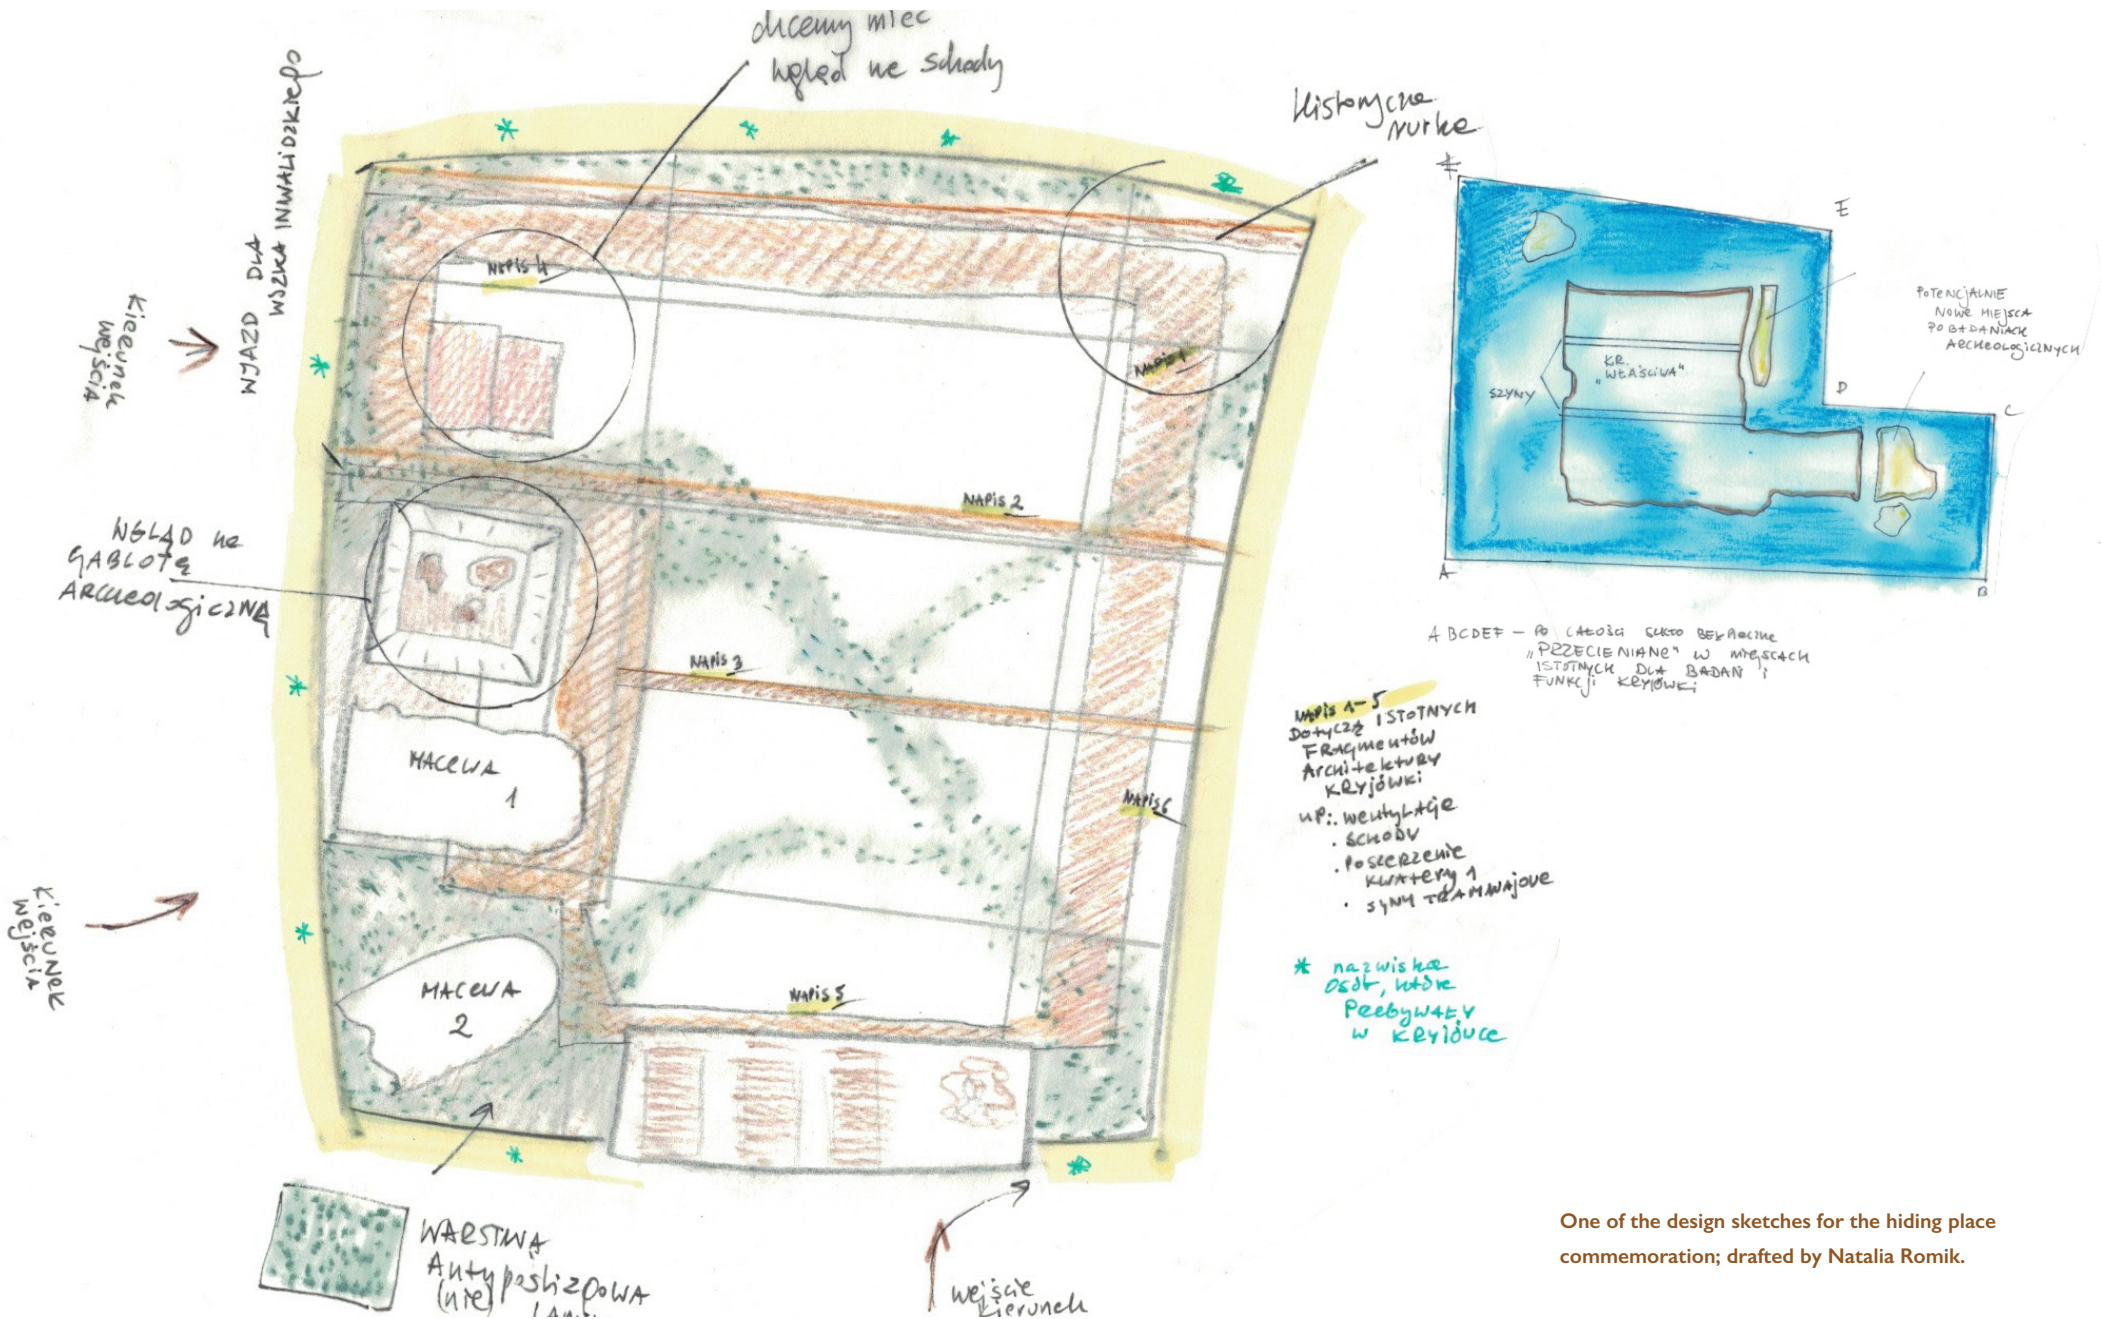 chcemy mieć
wgląd na schody
Historyczna
rurka
WYJAZD DLA
WÓZKA INWALIDZKIEGO
Kierunek
wejścia
NAPIS 4
NAPIS 1
NAPIS 2
WGLĄD na
GABLOTĘ
ARCHEOLOGICZNĄ
NAPIS 3
MACEWA
1
NAPIS 6
Kierunek
wejścia
MACEWA
2
NAPIS 5
WARSTWA
Antypoślizgowa
(nie)
wejście
kierunek
E
POTENCJALNIE
NOWE MIEJSCA
PO BADANIACH
ARCHEOLOGICZNYCH
KR.
"WŁAŚCIWA"
SZYNY
D
C
A
B
ABCDEF – PO CAŁOŚCI SZKŁO BEZPIECZNE
"PRZECIENIANE" W MIEJSCACH
ISTOTNYCH DLA BADAŃ i
FUNKCJI KRYJÓWKI
NAPIS 1–5
Dotyczą ISTOTNYCH
FRAGMENTÓW
Architektury
Kryjówki
np.: wentylacje
· SCHODY
· Poszerzenie
kwatery 1
· SZYNY TRAMWAJOWE
* nazwiska
osób, które
Przebywały
w KRYJÓWCE
One of the design sketches for the hiding place
commemoration; drafted by Natalia Romik.